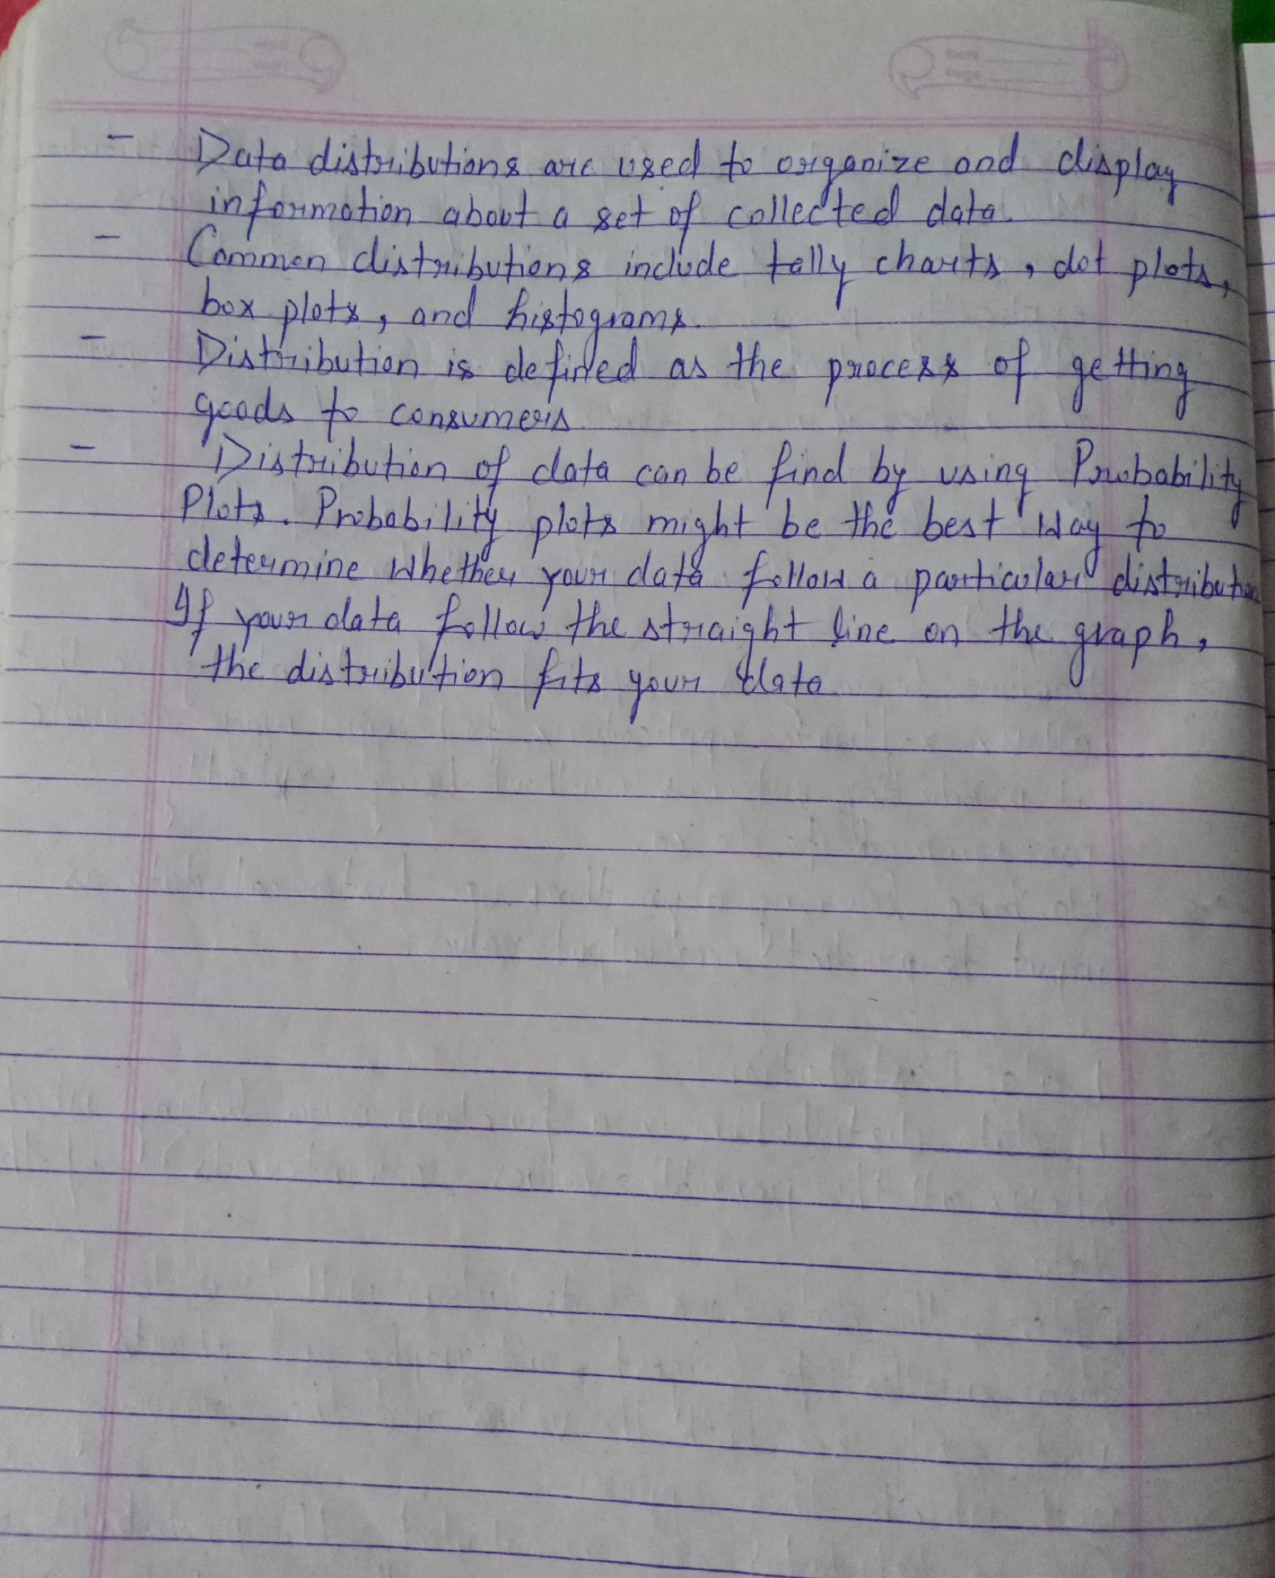 - Data distributions are used to organize and display
information about a set of collected data.
- Common distributions include tally charts, dot plots,
box plots, and histograms.
- Distribution is defined as the process of getting
goods to consumers
- Distribution of data can be find by using Probability
Plots. Probability plots might be the best way to
determine whether your data follow a particular distribution
If your data follow the straight line on the graph,
the distribution fits your data